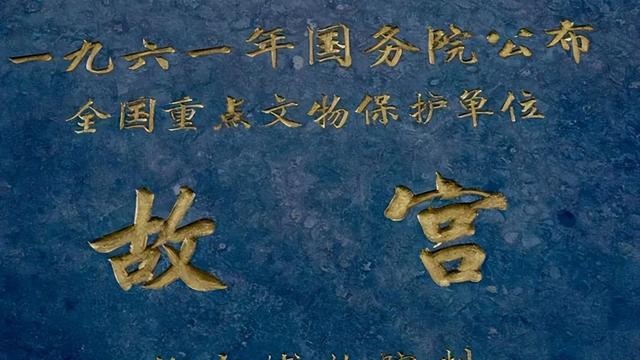 一九六一年国务院公布
全国重点文物保护单位
故宫